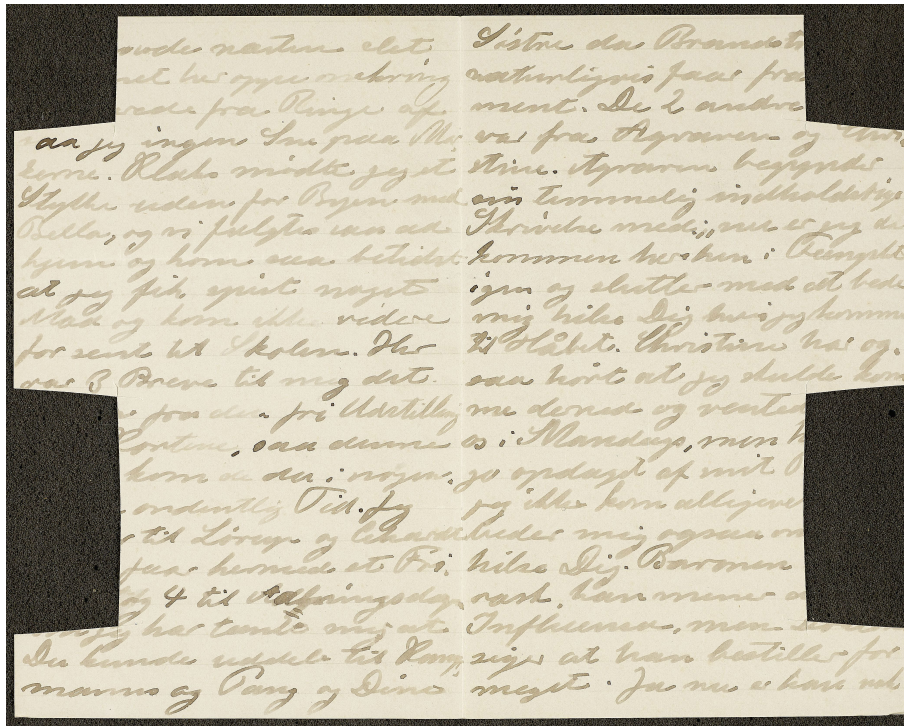 næsten slet
her oppe omkring
fra Ringe af
aa jeg ingen Sne paa
kerne. Klaks mødte jeg et
Stykke uden for Byen med
Bella, og vi fulgtes saa ad
hjem og kom saa betids
at jeg fik spist noget
Mad og kom ikke videre
for sent til Skolen. Her
var 3 Breve til mig det
fra den fri Udstilling
saa denne
kom da der i nogen,
ondentlig Tid. Jeg
til Lørege og
faar hermed et Fri
4 til
jeg har tænkt mig at
Du kunde uddele til Haug,
manns og Pang og Dine
Søstre da
naturligvis faar fra
ment. De 2 andre
var fra Agraren og
stine. Agraren begynder
sin temmelig indholdsrige
Skrivelse med: "nu er jeg da
kommen her hen i Templet
igen og slutter med at bede
mig hilse Dig hvis jeg kommer
til Håbet. Christine har og,
saa hørt at jeg skulde kom
me derned og ventede
os i Mandags, men
opdaget af mit
og ikke kom alligevel
beder mig ogsaa om
hilse Dig. Baronen
rask, han mener
Influenza, men
siger at han bestiller for
meget. Ja nu er han vel